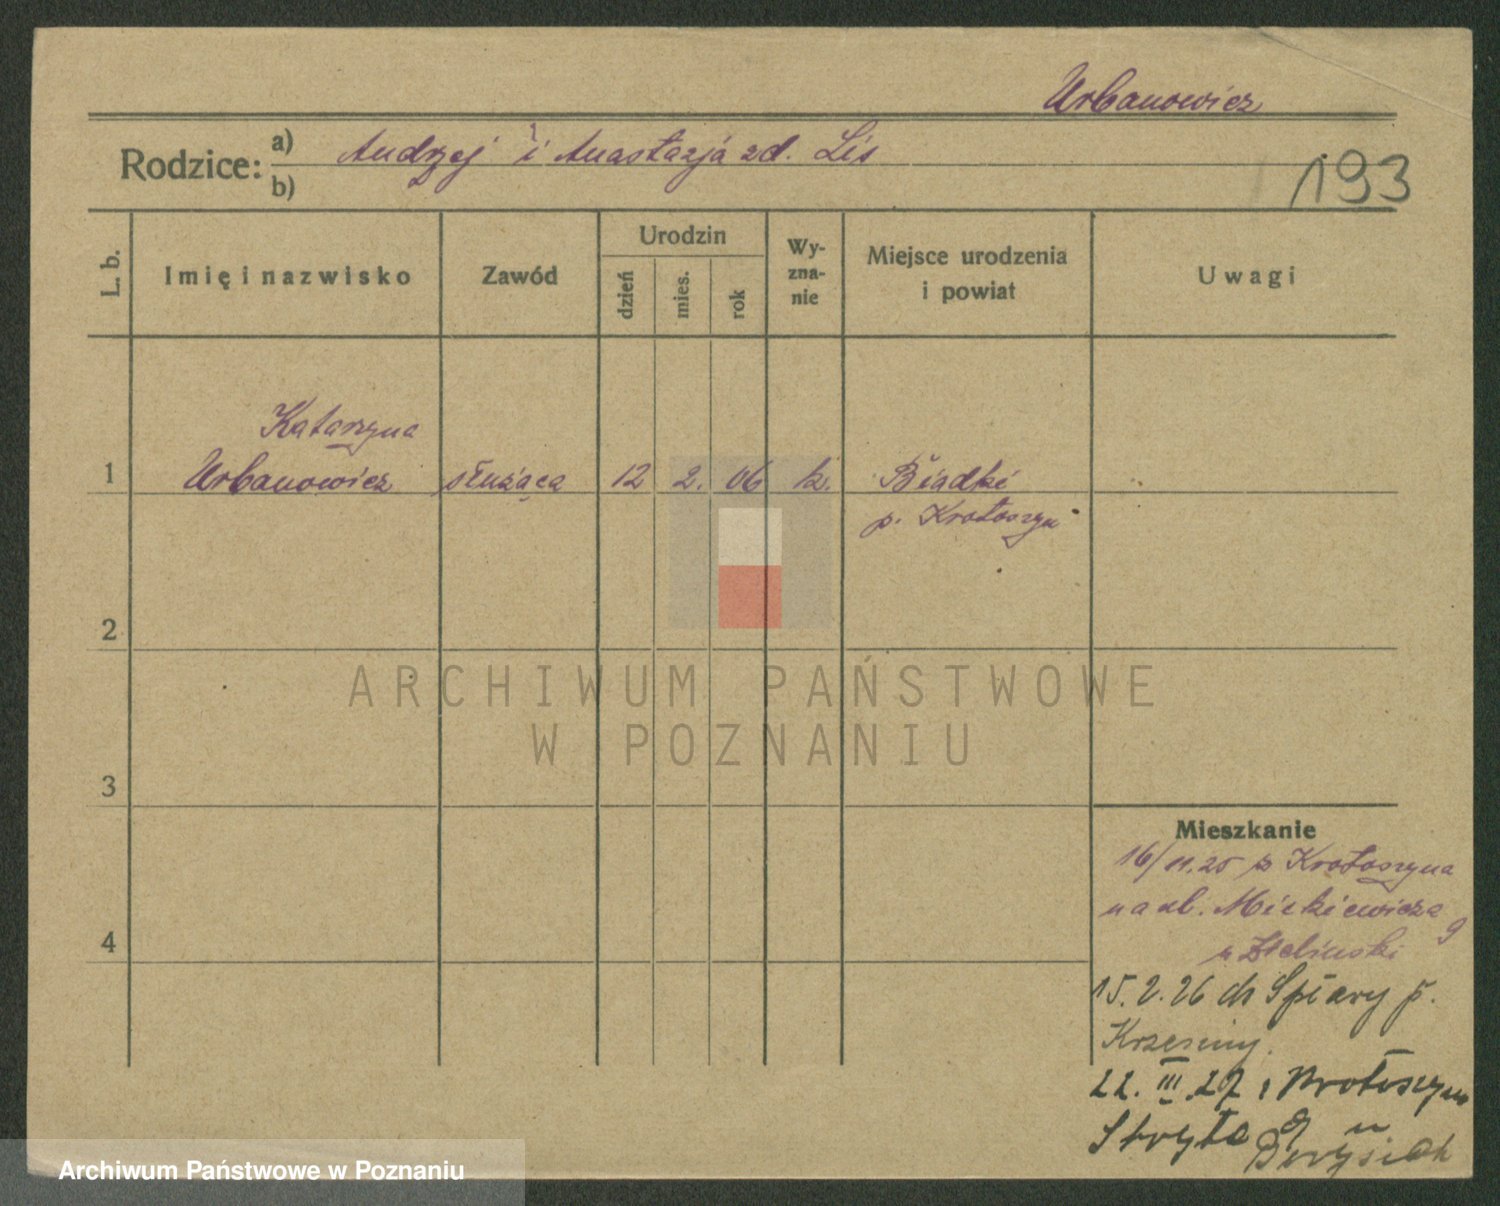 Urbanowicz
Rodzice: a) Andrzej i Anastazja zd. Lis
b)
193
L. b.
Imię i nazwisko
Zawód
Urodzin
dzień
mies.
rok
Wy-
zna-
nie
Miejsce urodzenia
i powiat
Uwagi
Katarzyna
1 Urbanowicz służąca 12 2. 06 k. Biadki
p. Krotoszyn
2
3
4
ARCHIWUM PAŃSTWOWE
W POZNANIU
Mieszkanie
16/11.25 z Krotoszyna
na ul. Mickiewicza 9
u Zieliński
15.2.26 do Spławy p.
Krzesiny.
22.III.27 z Krotoszyna
Strzyża
Archiwum Państwowe w Poznaniu